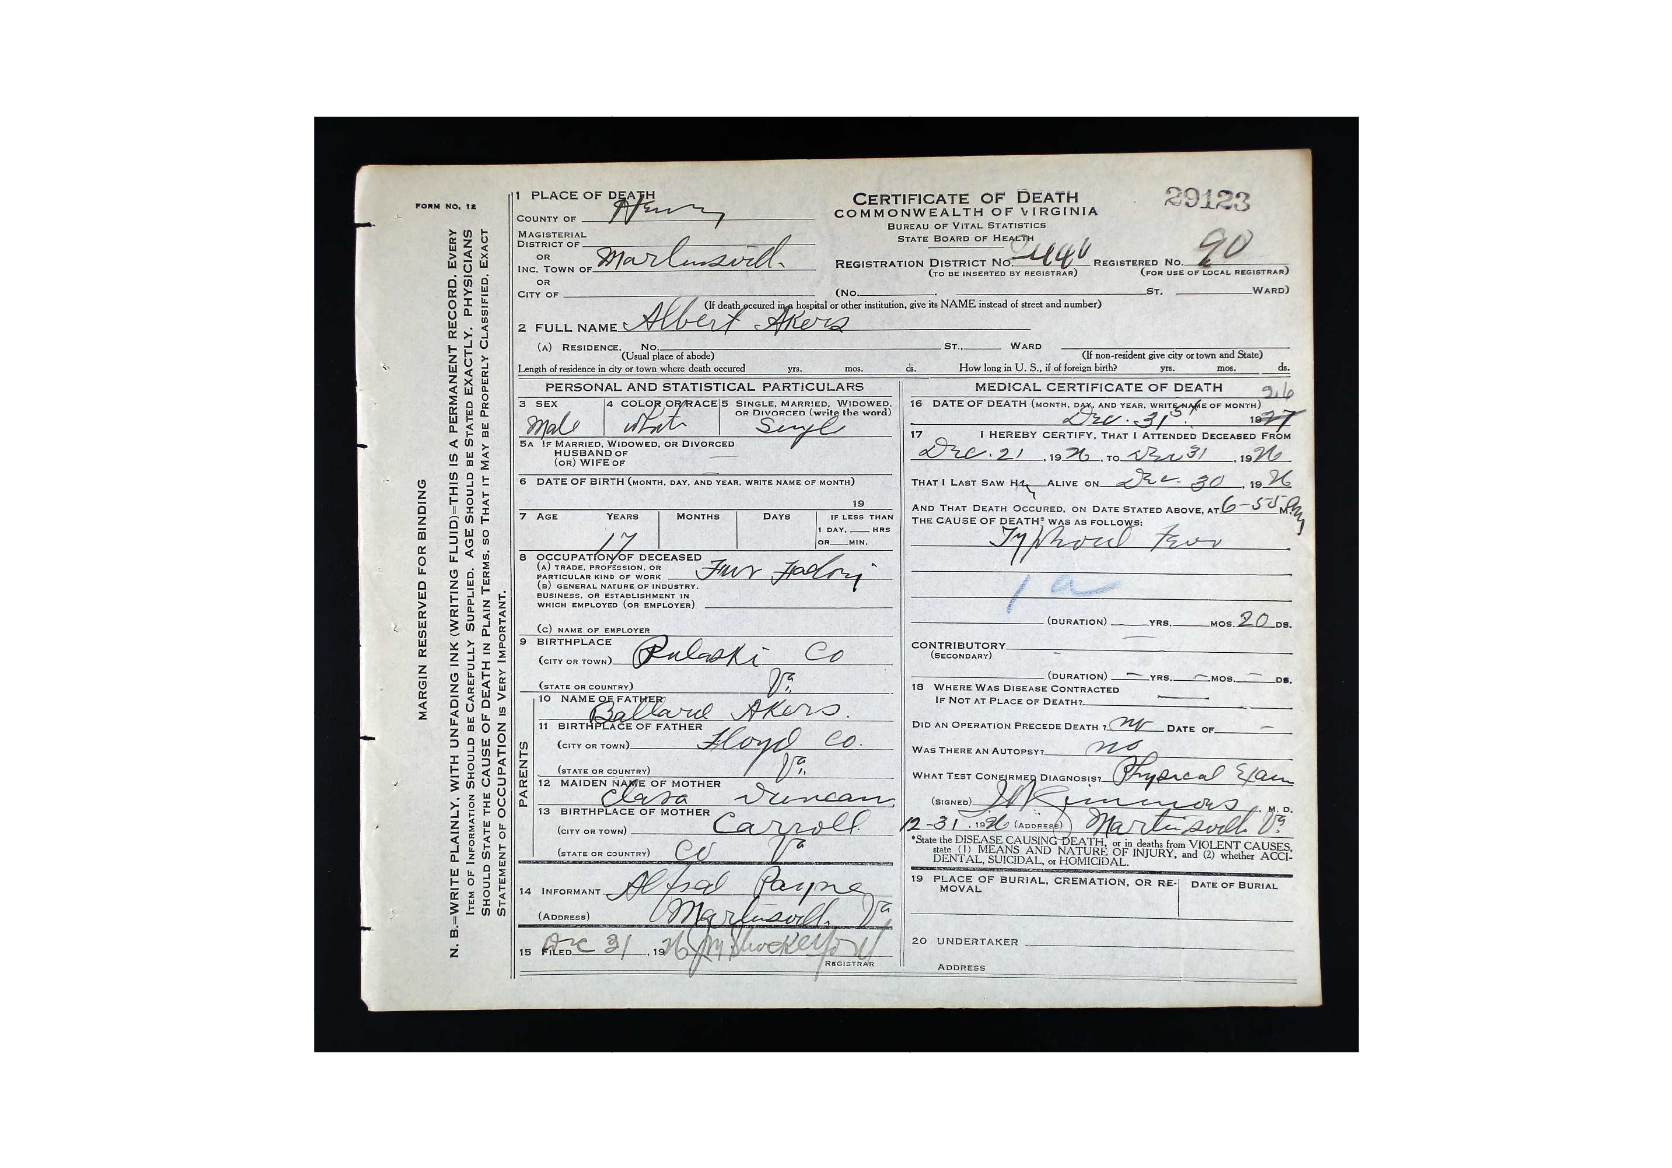 FORM NO. 12
MARGIN RESERVED FOR BINDING
N. B.—WRITE PLAINLY, WITH UNFADING INK (WRITING FLUID)—THIS IS A PERMANENT RECORD. EVERY
ITEM OF INFORMATION SHOULD BE CAREFULLY SUPPLIED. AGE SHOULD BE STATED EXACTLY. PHYSICIANS
SHOULD STATE THE CAUSE OF DEATH IN PLAIN TERMS, SO THAT IT MAY BE PROPERLY CLASSIFIED. EXACT
STATEMENT OF OCCUPATION IS VERY IMPORTANT.
1 PLACE OF DEATH
COUNTY OF Henry
MAGISTERIAL
DISTRICT OF
OR
INC. TOWN OF Martinsvill.
OR
CITY OF
CERTIFICATE OF DEATH
COMMONWEALTH OF VIRGINIA
BUREAU OF VITAL STATISTICS
STATE BOARD OF HEALTH
29123
REGISTRATION DISTRICT NO.
(TO BE INSERTED BY REGISTRAR)
REGISTERED NO. 90
(FOR USE OF LOCAL REGISTRAR)
(NO. ST. WARD)
(If death occured in a hospital or other institution, give its NAME instead of street and number)
2 FULL NAME Albert Akers
(A) RESIDENCE. NO. ST., WARD
(Usual place of abode) (If non-resident give city or town and State)
Length of residence in city or town where death occured yrs. mos. ds. How long in U. S., if of foreign birth? yrs. mos. ds.
PERSONAL AND STATISTICAL PARTICULARS
3 SEX
Male
4 COLOR OR RACE
5 SINGLE, MARRIED, WIDOWED,
OR DIVORCED (write the word)
Singl
5A IF MARRIED, WIDOWED, OR DIVORCED
HUSBAND OF
(OR) WIFE OF
6 DATE OF BIRTH (MONTH, DAY, AND YEAR, WRITE NAME OF MONTH)
19
7 AGE YEARS MONTHS DAYS IF LESS THAN
1 DAY, HRS
OR MIN.
17
8 OCCUPATION OF DECEASED
(A) TRADE, PROFESSION, OR
PARTICULAR KIND OF WORK Fur Factory
(B) GENERAL NATURE OF INDUSTRY,
BUSINESS, OR ESTABLISHMENT IN
WHICH EMPLOYED (OR EMPLOYER)
(C) NAME OF EMPLOYER
9 BIRTHPLACE
(CITY OR TOWN) Pulaski Co
(STATE OR COUNTRY) Va.
PARENTS
10 NAME OF FATHER
Ballard Akers.
11 BIRTHPLACE OF FATHER
(CITY OR TOWN) Floyd Co.
(STATE OR COUNTRY) Va.
12 MAIDEN NAME OF MOTHER
Clara Duncan
13 BIRTHPLACE OF MOTHER
(CITY OR TOWN) Carroll
(STATE OR COUNTRY) Co Va
14 INFORMANT Alfred Payne
(ADDRESS) Martinsvill. Va
15 FILED Dec 31, 1926 JM Shackelford
REGISTRAR
MEDICAL CERTIFICATE OF DEATH
26
16 DATE OF DEATH (MONTH, DAY, AND YEAR, WRITE NAME OF MONTH)
Dec. 31st 1927
17 I HEREBY CERTIFY, THAT I ATTENDED DECEASED FROM
Dec. 21, 1926, TO Dec 31, 1926
THAT I LAST SAW H ALIVE ON Dec. 30, 1926
AND THAT DEATH OCCURED, ON DATE STATED ABOVE, AT 6-55 P M.
THE CAUSE OF DEATH* WAS AS FOLLOWS:
Typhoid Fever
1 a
(DURATION) YRS. MOS. 20 DS.
CONTRIBUTORY
(SECONDARY)
(DURATION) — YRS. — MOS. — DS.
18 WHERE WAS DISEASE CONTRACTED
IF NOT AT PLACE OF DEATH?
DID AN OPERATION PRECEDE DEATH? no DATE OF —
WAS THERE AN AUTOPSY? no
WHAT TEST CONFIRMED DIAGNOSIS? Physical Exam
(SIGNED) Simmons, M. D.
12-31, 1926 (ADDRESS) Martinsvill. Va
*State the DISEASE CAUSING DEATH, or in deaths from VIOLENT CAUSES,
state (1) MEANS AND NATURE OF INJURY, and (2) whether ACCI-
DENTAL, SUICIDAL, or HOMICIDAL.
19 PLACE OF BURIAL, CREMATION, OR RE-
MOVAL
DATE OF BURIAL
20 UNDERTAKER
ADDRESS